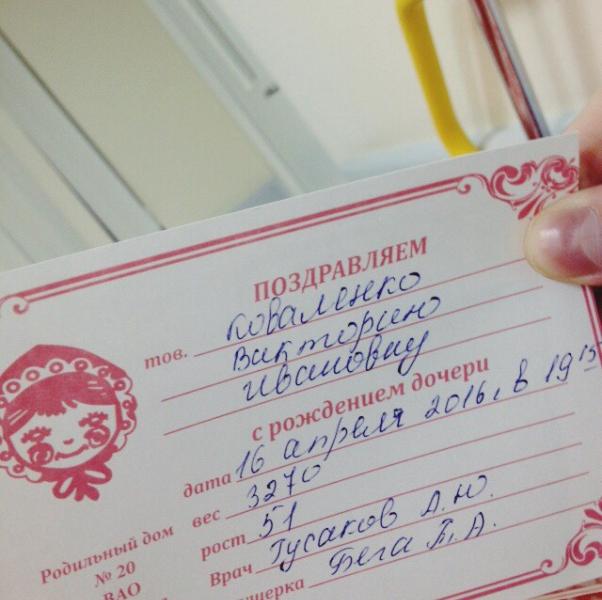 ПОЗДРАВЛЯЕМ
тов. Коваленко
Викторию
Ивановну
с рождением дочери
дата 16 апреля 2016 г в 19 15
вес 3270
рост 51
Врач Гусаков А.Ю.
Бега Т.А.
Родильный дом
№ 20
ВАО